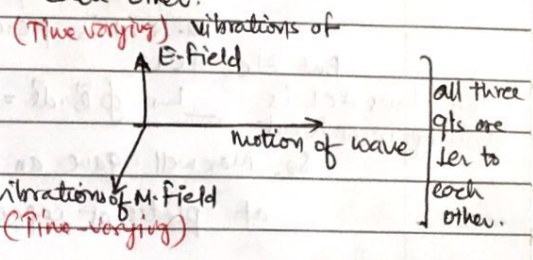 (Time varying) vibrations of
E-field
motion of wave
vibrations of M. field
(Time-varying)
all three
qts are
⊥er to
each
other.